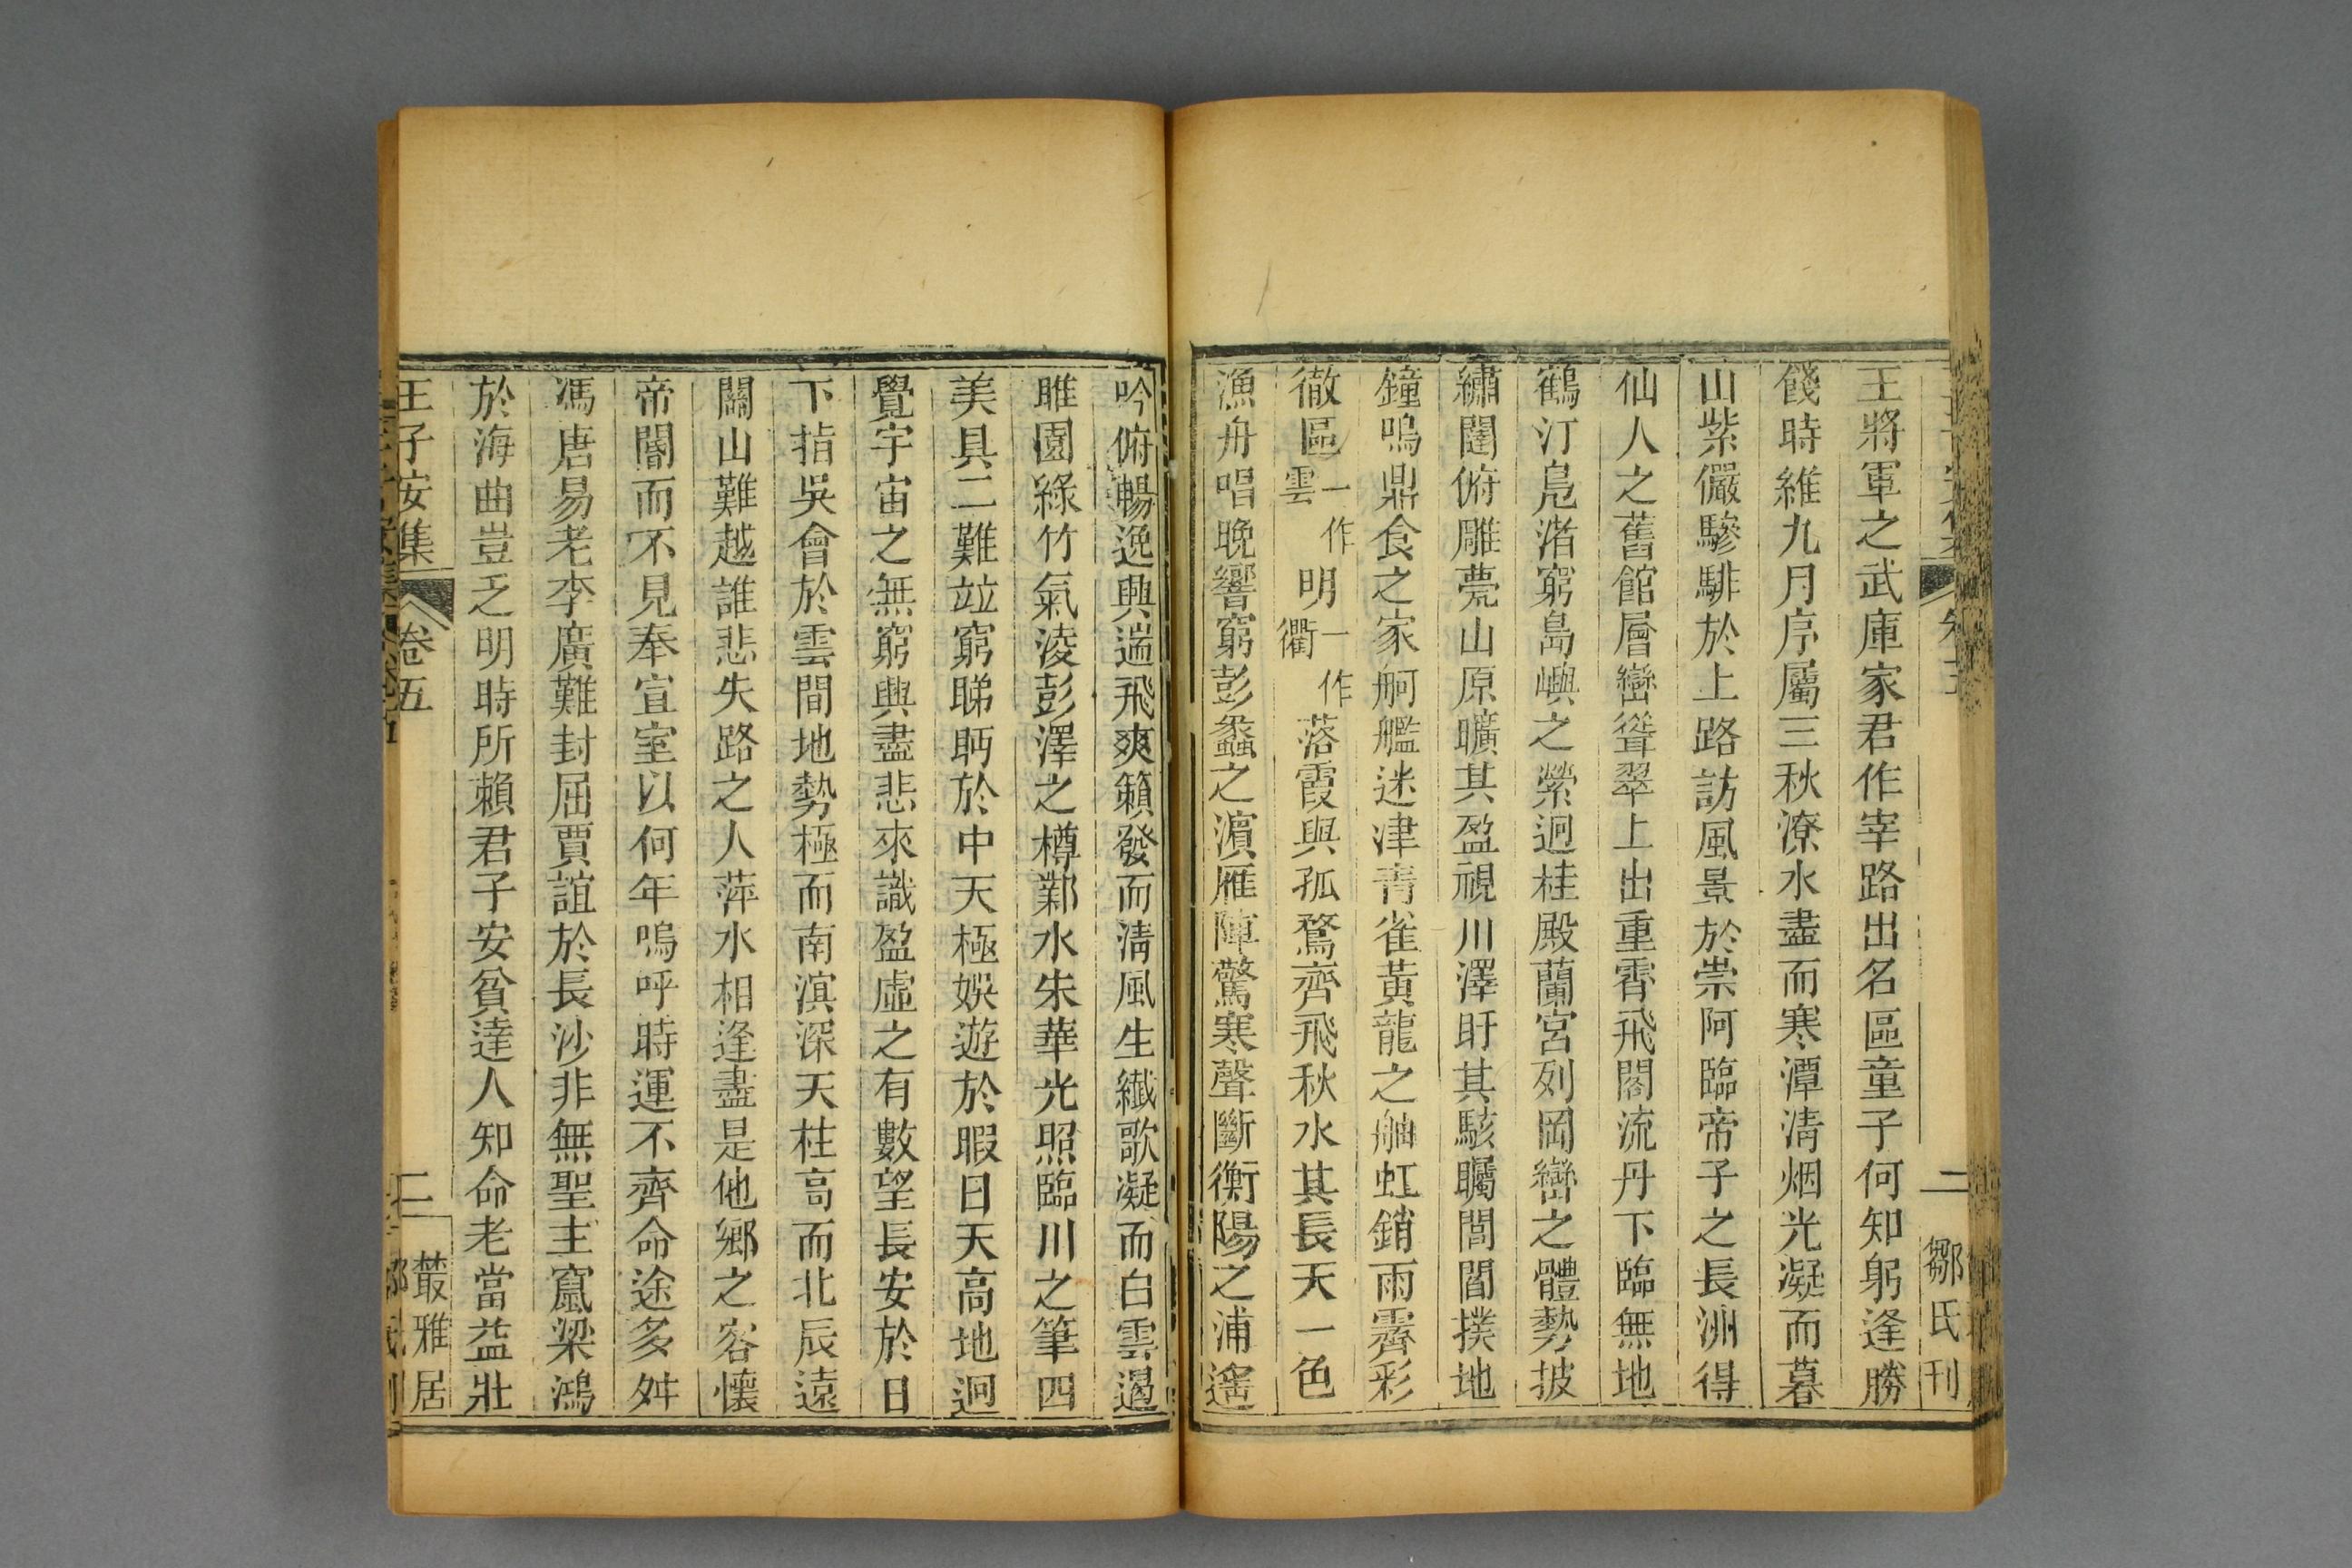 鄒氏刊
二
王將軍之武庫家君作宰路出名區童子何知躬逢勝
餞時維九月序屬三秋潦水盡而寒潭清烟光凝而暮
山紫儼驂騑於上路訪風景於崇阿臨帝子之長洲得
仙人之舊館層巒聳翠上出重霄飛閣流丹下臨無地
鶴汀鳧渚窮島嶼之縈迴桂殿蘭宮列岡巒之體勢披
繡闥俯雕甍山原曠其盈視川澤盱其駭矚閭閻撲地
鐘鳴鼎食之家舸艦迷津青雀黃龍之舳虹銷雨霽彩
徹區一作雲明一作衢落霞與孤鶩齊飛秋水其長天一色
漁舟唱晚響窮彭蠡之濵雁陣驚寒聲斷衡陽之浦遙
吟俯暢逸興遄飛爽籟發而清風生纎歌凝而白雲遏
睢園綠竹氣淩彭澤之樽鄴水朱華光照臨川之筆四
美具二難竝窮睇眄於中天極娛遊於暇日天高地迥
覺宇宙之無窮興盡悲來識盈虛之有數望長安於日
下指吳會於雲間地勢極而南溟深天柱高而北辰遠
關山難越誰悲失路之人萍水相逢盡是他鄉之客懷
帝閽而不見奉宣室以何年嗚呼時運不齊命途多舛
馮唐易老李廣難封屈賈誼於長沙非無聖主竄梁鴻
於海曲豈乏明時所賴君子安貧達人知命老當益壯
王子安集 卷五 二 叢雅居